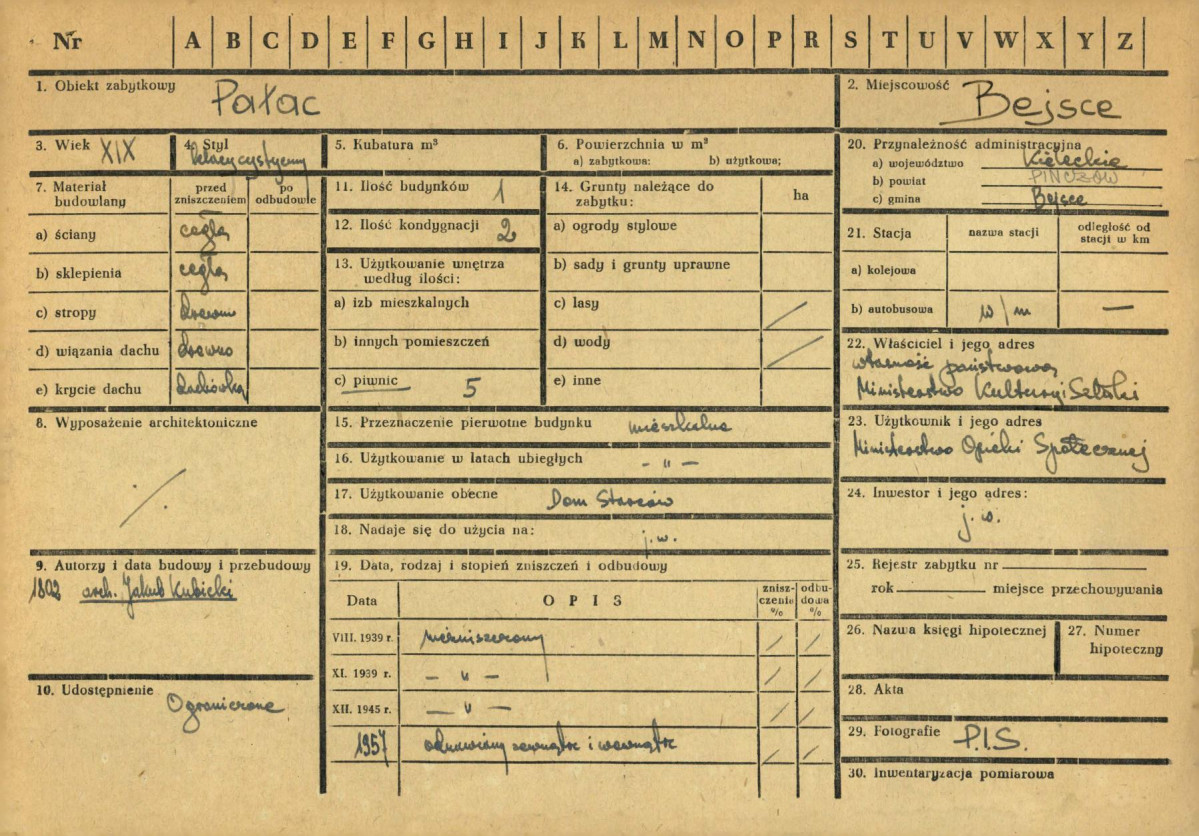 Nr A B C D E F G H I J K L M N O P R S T U V W X Y Z
1. Obiekt zabytkowy Pałac
2. Miejscowość Bejsce
3. Wiek XIX
4. Styl klasycystyczny
5. Kubatura m³
6. Powierzchnia w m²
a) zabytkowa: b) użytkowa;
20. Przynależność administracyjna
a) województwo Kieleckie
b) powiat PIŃCZÓW
c) gmina Bejsce
7. Materiał budowlany
przed zniszczeniem
po odbudowie
a) ściany cegła
b) sklepienia cegła
c) stropy drewno
d) wiązania dachu drewno
e) krycie dachu dachówka
11. Ilość budynków 1
12. Ilość kondygnacji 2
13. Użytkowanie wnętrza
według ilości:
a) izb mieszkalnych
b) innych pomieszczeń
c) piwnic 5
14. Grunty należące do
zabytku:
ha
a) ogrody stylowe
b) sady i grunty uprawne
c) lasy /
d) wody /
e) inne
21. Stacja
nazwa stacji
odległość od
stacji w km
a) kolejowa
b) autobusowa w/m —
22. Właściciel i jego adres
własność państwowa
Ministerstwo Kultury i Sztuki
8. Wyposażenie architektoniczne
/
15. Przeznaczenie pierwotne budynku mieszkalne
16. Użytkowanie w latach ubiegłych - " -
17. Użytkowanie obecne Dom Starców
18. Nadaje się do użycia na: j.w.
23. Użytkownik i jego adres
Ministerstwo Opieki Społecznej
24. Inwestor i jego adres:
j.w.
9. Autorzy i data budowy i przebudowy
1802 arch. Jakub Kubicki
10. Udostępnienie
Ograniczone
19. Data, rodzaj i stopień zniszczeń i odbudowy
Data OPIS znisz-czenia % odbu-dowa %
VIII. 1939 r. niezniszczony / /
XI. 1939 r. - " - / /
XII. 1945 r. - " - / /
1957 odnowiony zewnątrz i wewnątrz / /
25. Rejestr zabytku nr
rok miejsce przechowywania
26. Nazwa księgi hipotecznej
27. Numer
hipoteczny
28. Akta
29. Fotografie P.I.S.
30. Inwentaryzacja pomiarowa